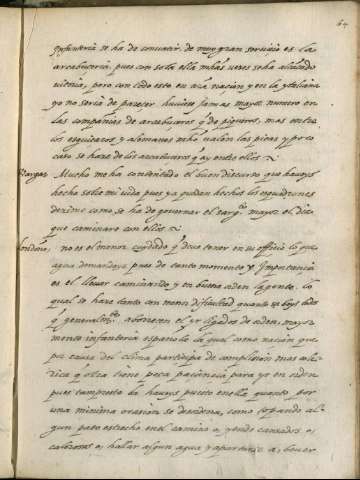 64
Infanteria se ha de combatir. de muy gran servicio es la
arcabuzeria pues con sola ella muchas vezes se ha alcançado
vitoria, pero con todo esto en nra nacion y en la ytaliana
yo no seria de parecer huviese jamas mayor numero en
las compañias de arcabuzeros q̃ de piqueros, mas entre
los esguizaros y alemanes mucho valen las picas y poco
caso se haze de los arcabuzeros q̃ ay entre ellos
Vargas Mucho me ha contentado el buen discurso que haveys
hecho sobre mi duda pues ya quedan hechos los esquadrones
dezidme como se ha de governar el sargto mayor el dia
que caminare con ellos
Londoño. no es el menor cuydado q̃ deve tener en su officio lo que
agora demandays pues de tanto momento y Importancia
es el llevar caminando y en buena orden la gente. lo
qual se haze tanto con menos dificultad quanto
q̃ generalmte aborrecen el yr ligados de orden, mayor
mente infanteria española la qual como nacion que
por causa del clima participa de complexion mas cole-
rica q̃ otra tiene poca paciencia para yr en orden
pues tampresto la haveys puesto en ella quanto por
una minima ocasion se desordena, como topando al-
gun paso estrecho en el camino o, yendo cansados o,
calorosos o, hallar algun agua y apartarse a, bever